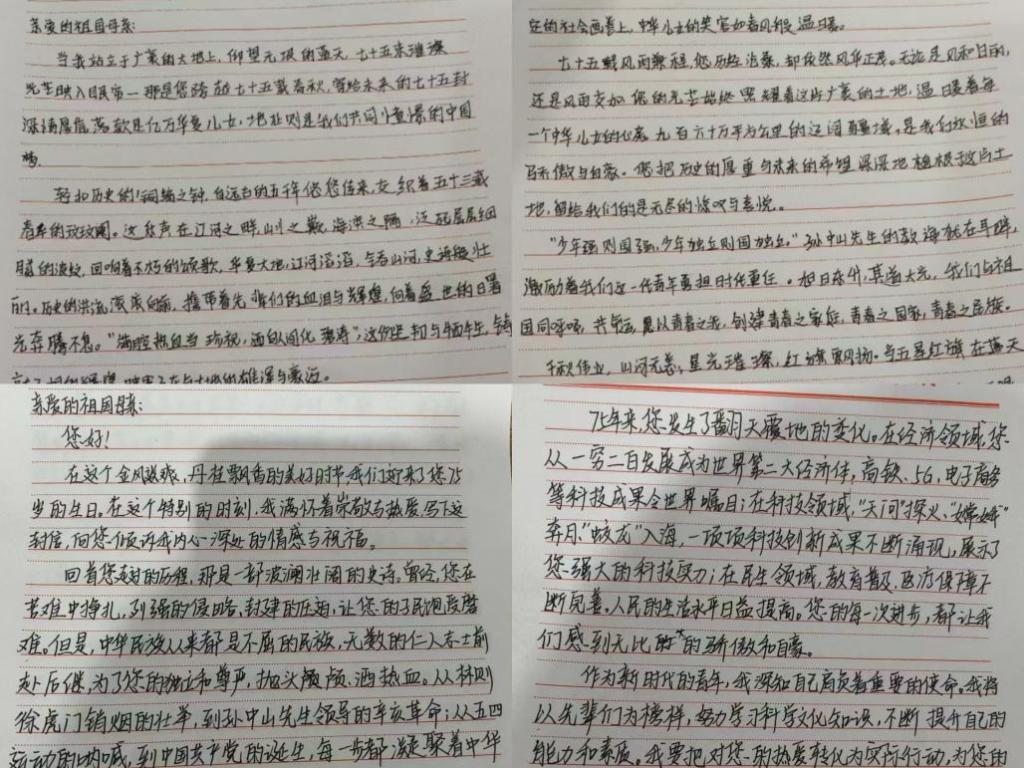 亲爱的祖国母亲:
当我站立于广袤的大地上,仰望无垠的蓝天,七十五束璀璨
光芒映入眼帘—那是您跨越七十五载春秋,寄给未来的七十五封
深情厚谊 落款是亿万华夏儿女,地址则是我们共同憧憬的中国
梦.
轻扣历史的门铜编之钟,自远古的五千年悠悠传来,交织着五十三载
春华的玫瑰。这钟声在江河之畔,山川之巅,海洋之隅,泛起层层细
腻的波纹,回响着不朽的颂歌,华夏大地,江河滔滔,
丽。历史的洪流滚滚向前,携带着先辈们的血泪与辉煌,向着盛世的曙
光奔腾不息。“满腔热血当珍视,洒向人间化碧涛”,这份
的社会画卷上,中华儿女的笑容如春风般温暖。
七十五载风雨兼程,您历经沧桑,却依然风华正茂。无论是风和日丽,
还是风雨交加 您的光芒始终照耀着这片广袤的土地,温暖着每
一个中华儿女的心房 九百六十万平方公里的辽阔疆域,是我们永恒的
骄傲与自豪。您把历史的厚重与未来的希望深深地植根于这片土
地,留给我们的是无尽的惊叹与喜悦。
“少年强则国强,少年独立则国独立。”孙中山先生的教诲犹在耳畔,
激励着我们这一代青年勇担时代重任。旭日东升,其道大光,我们与祖
国同呼吸,共命运,愿以青春之我,创建青春之家庭,青春之国家,青春之民族。
千秋伟业,山河无恙,星光璀璨,红旗飘扬。与五星红旗在蓝天
亲爱的祖国母亲:
您好!
在这个金风送爽,丹桂飘香的美好时节,我们迎来了您75
岁的生日。在这个特别的时刻,我满怀着崇敬与热爱,写下这
封信,向您倾诉我内心深处的情感与祝福。
回首您走过的历程,那是一部波澜壮阔的史诗。曾经,您在
苦难中挣扎,列强的侵略,封建的压迫,让您的子民饱受磨
难。但是,中华民族从来都是不屈的民族,无数的仁人志士前
赴后继,为了您的独立和尊严,抛头颅、洒热血。从林则
徐虎门销烟的壮举,到孙中山先生领导的辛亥革命;从五四
运动的呐喊,到中国共产党的诞生,每一步都凝聚着中华
75年来,您发生了翻天覆地的变化。在经济领域,您
从一穷二白发展成为世界第二大经济体,高铁、5G、电子商务
等科技成果令世界瞩目;在科技领域,“天问”探火、“嫦娥”
奔月、“蛟龙”入海,一项项科技创新成果不断涌现,展示了
您强大的科技实力;在民生领域,教育普及,医疗保障不
断完善。人民的生活水平日益提高。您的每一次进步,都让我
们感到无比的骄傲和自豪。
作为新时代的青年,我深知自己肩负着重要的使命。我将
以先辈们为榜样,努力学习科学文化知识,不断提升自己的
能力和素质。我要把对您的热爱转化为实际行动,为您的